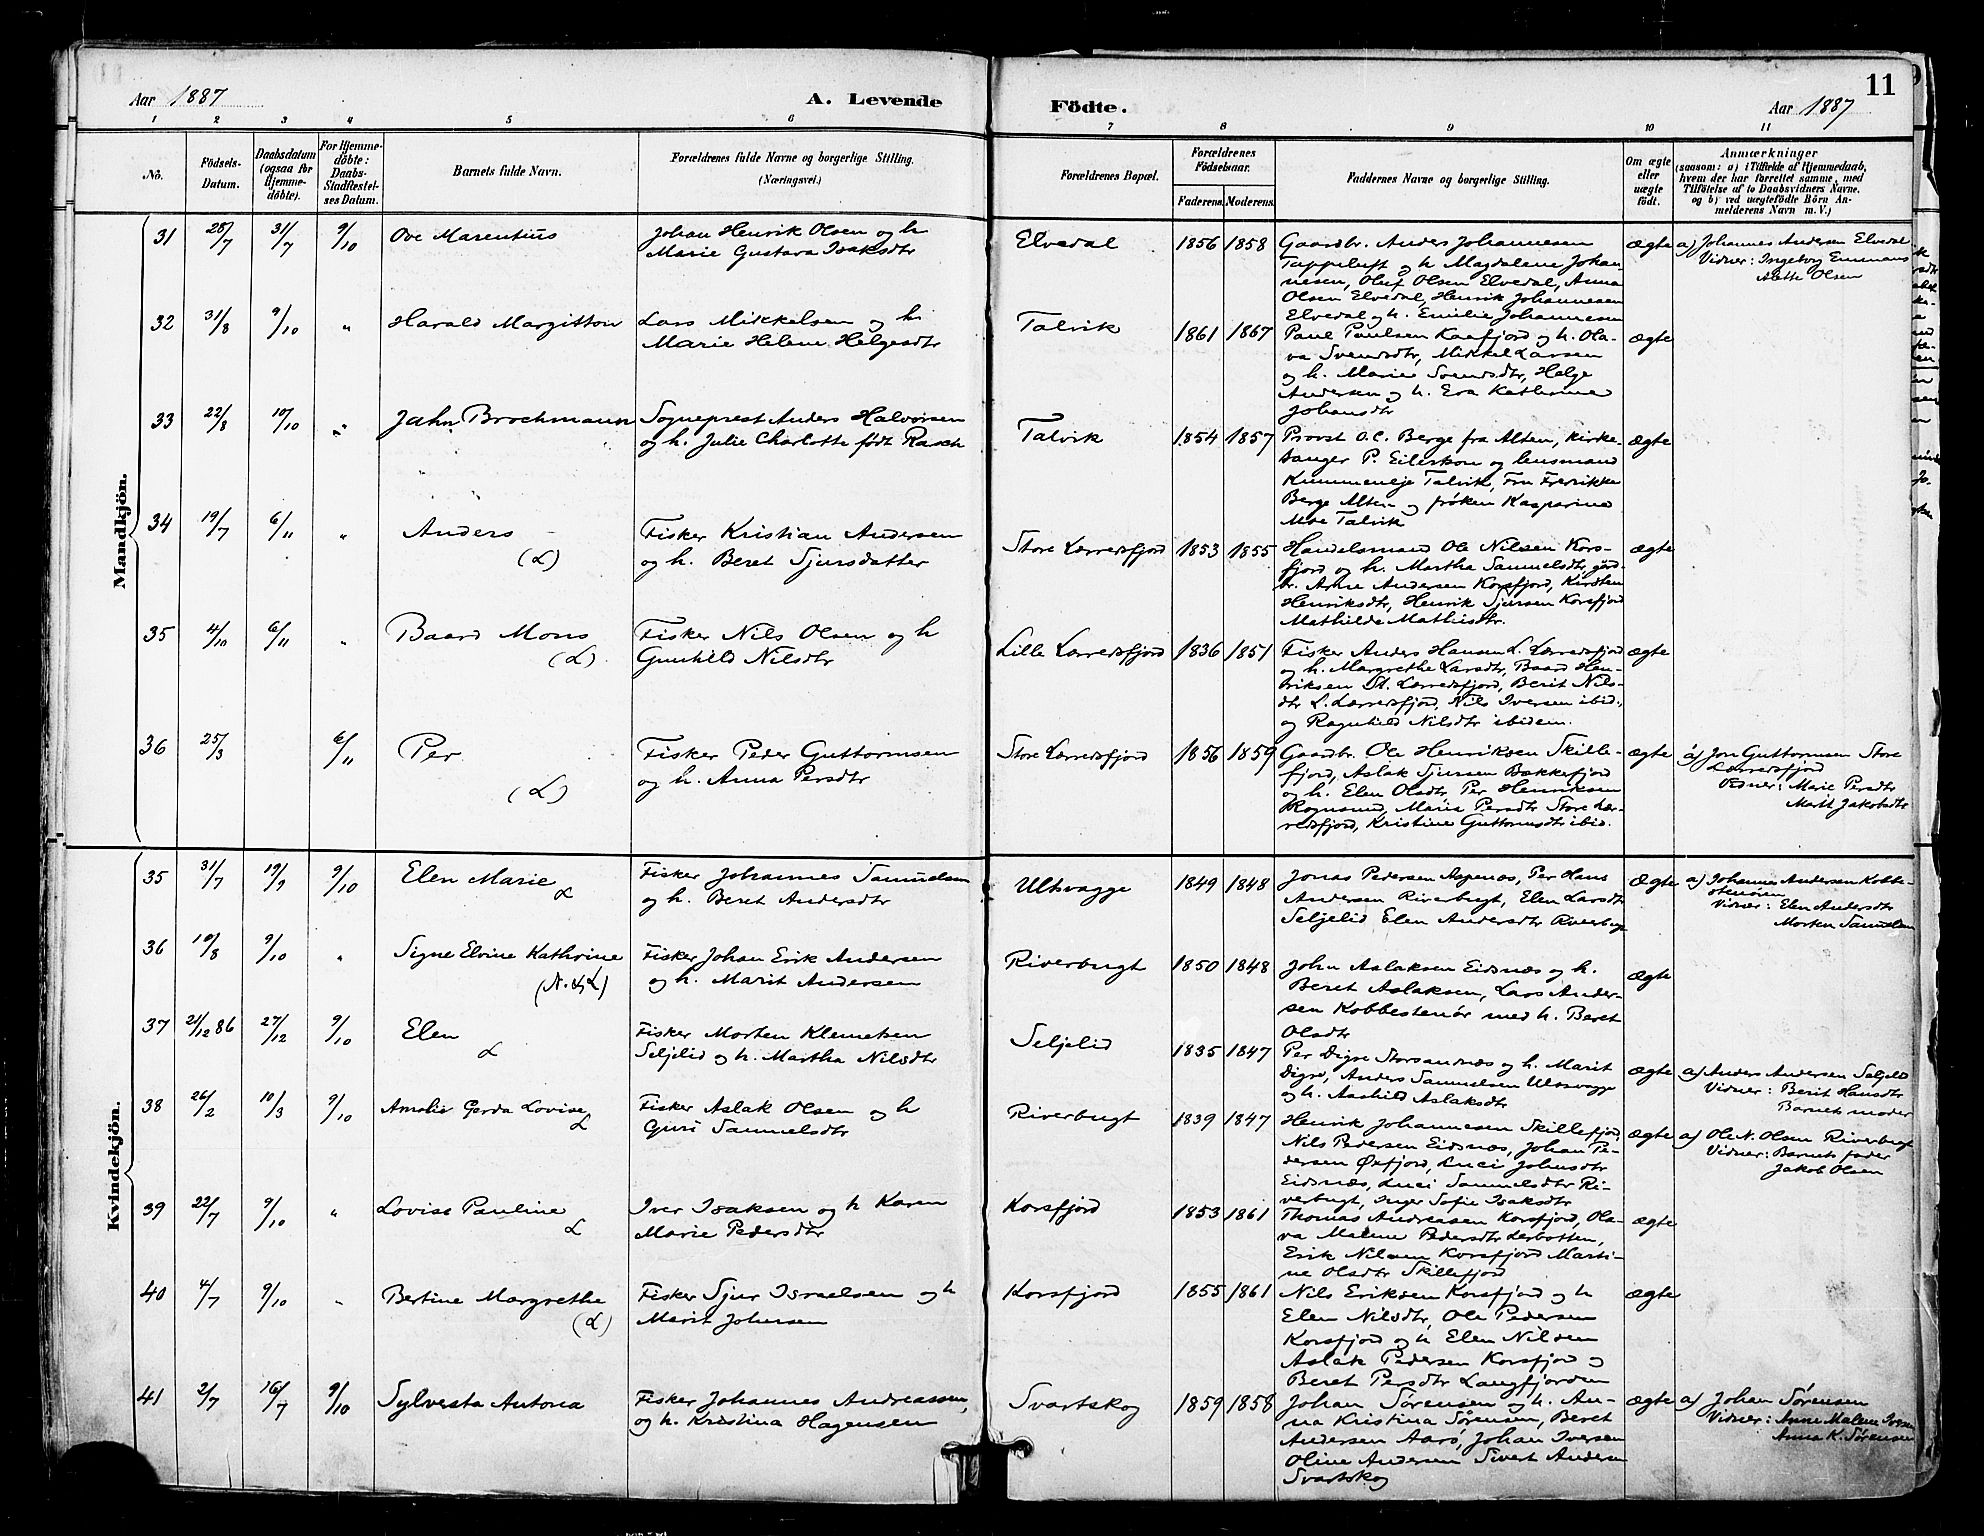 Aar 1887
A. Levende
Födte.
Aar 1887
11
1 2 3 4 5 6 7 8 9 10 11
No.
Födsels-
Datum.
Daabsdatum
(ogsaa for
Hjemme-
döbte).
For Hjemme-
döbte:
Daabs-
Stadfæstel-
ses Datum.
Barnets fulde Navn.
Forældrenes fulde Navne og borgerlige Stilling.
(Næringsvei.)
Forældrenes Bopæl.
Forældrenes
Födselsaar.
Faderens. Moderens.
Faddernes Navne og borgerlige Stilling.
Om ægte
eller
uægte
födt.
Anmærkninger
(saasom: a) i Tilfælde af Hjemmedaab,
hvem der har forrettet samme, med
Tilföielse af to Daabsvidners Navne.
og b) ved uægtefödte Börn An-
melderens Navn m. V.)
Mandkjön.
31 28/7 31/7 9/10 Ove Marentius
Johan Henrik Olsen og h
Marie Gustava Isaksdtr
Elvedal 1856 1858
Gaardbr. Anders Johannesen
Tappeluft og h Magdalene Johan-
nesen, Oluf Olsen Elvedal, Anna
Olsen Elvedal, Henrik Johannesen
Elvedal og h. Emilie Johannesen
ægte
a) Johannes Andersen Elvedal
Vidner: Ingeborg Emmans
Alette Olsen
32 31/8 9/10 " Harald Margitton
Lars Mikkelsen og h.
Marie Helene Helgesdtr
Talvik 1861 1867
Paul Paulsen Kaafjord og h. Ola-
va Svendsdtr, Mikkel Larsen
og h. Marie Svendsdtr, Helge
Andersen og h. Eva Kathrine
Johansdtr
ægte
33 22/8 10/10 " Jahn Brochmann
Sogneprest Anders Halvorsen
og h. Julie Charlotte født Rasch
Talvik 1854 1857
Provst O.C. Berge fra Alten, kirke-
sanger P. Eilerskou og lensmand
Kummeneje Talvik, Fru Fredrikke
Berge Alten og frøken Kasparine
Moe Talvik
ægte
34 19/7 6/11 " Anders
(L)
Fisker Kristian Andersen
og h. Beret Sjursdatter
Store Lerresfjord 1853 1855
Handelsmand Ole Nilsen Kors-
fjord og h. Martha Samuelsdtr, gård-
br. Arne Andersen Korsfjord, Kirsten
Henriksdtr, Henrik Sjursen Korsfjord
Mathilde Mathisdtr.
ægte
35 4/10 6/11 " Baard Mons
(L)
Fisker Nils Olsen og h
Gunhild Nilsdtr
Lille Lerresfjord 1836 1851
Fisker Anders Hansen L. Lerresfjord
og h. Margrethe Larsdtr, Baard Hen-
riksen St. Lerresfjord, Berit Nils-
dtr L. Lerresfjord, Nils Iversen ibid.,
og Ragnhild Nilsdtr ibidem.
ægte
36 25/3 6/11 Per
(L)
Fisker Peder Guttormsen
og h. Anna Persdtr
Store Lerresfjord 1856 1859
Gaardbr. Ole Henriksen Skille-
fjord, Aslak Sjursen Bakkefjord
og h. Elen Olsdtr, Per Henriksen
Rognsund, Marie Persdtr Store Ler-
resfjord, Kristine Guttormsdtr ibid.
ægte
a) Jon Guttormsen Store
Lerresfjord
Vidner: Marie Persdtr
Marit Jakobsdtr
Kvindekjön.
35 31/7 19/9 9/10 Elen Marie
L
Fisker Johannes Samuelsen
og h. Beret Andersdtr
Ulsvagge 1849 1848
Jonas Pedersen Aspenæs, Per Hans
Andersen Riverbugt, Elen Larsdtr
Seljelid Elen Andersdtr Riverbugt
ægte
a) Johannes Andersen Kobbe-
stenøren
Vidner: Elen Andersdtr
Morten Samuelsen
36 10/8 9/10 " Signe Elvine Kathrine
(N. & L)
Fisker Johan Erik Andersen
og h. Marit Andersen
Riverbugt 1850 1848
John Aslaksen Eidsnæs og h.
Beret Aslaksen, Lars Ander-
sen Kobbestenør med h. Beret
Olsdtr
ægte
37 21/12 86 27/12 9/10 Elen
L
Fisker Morten Klemetsen
Seljelid og h. Martha Nilsdtr
Seljelid 1835 1847
Per Digre Storsandnæs og h. Marit
Digre, Anders Samuelsen Ulsvagge
og h. Aashild Aslaksdtr
ægte
a) Anders Andersen Seljelid
Vidner: Berit Hansdtr
Barnets moder
38 26/2 10/3 9/10 Amalie Gerda Lovise
L
Fisker Aslak Olsen og h
Guri Samuelsdtr
Riverbugt 1839 1847
Henrik Johannesen Skillefjord,
Nils Pedersen Eidsnæs, Johan Pe-
dersen Øxfjord, Luci Johnsdtr
Eidsnæs, Luci Samuelsdtr Ri-
verbugt, Inger Sofie Isaksdtr
ægte
a) Ole N. Olsen Riverbugt
Vidner: Barnets fader
Jakob Olsen
39 22/7 9/10 " Lovise Pauline
L
Iver Isaksen og h Karen
Marie Pedersdtr
Korsfjord 1853 1861
Thomas Andreasen Korsfjord, Ola-
va Malene Pedersdtr Lerbotten,
Erik Nilsen Korsfjord Marti-
ne Olsdtr Skillefjord
ægte
40 4/7 9/10 " Bertine Margrethe
(L)
Fisker Sjur Israelsen og h
Marit Johnsen
Korsfjord 1855 1861
Nils Eriksen Korsfjord og h
Elen Nilsdtr, Ole Pedersen
Korsfjord og h Elen Nilsen
Aslak Pedersen Korsfjord og
Beret Persdtr Langfjorden
ægte
41 2/7 16/7 9/10 Sylvesta Antona
Fisker Johannes Andreassen,
og h. Kristina Hagensen
Svartskog 1859 1858
Johan Sørensen og h. An-
na Kristina Sørensen, Beret
Andersen Aarø, Johan Iversen
Oline Andersen Sivert Andersen
Svartskog
ægte
a) Johan Sørensen
Vidner: Anne Malene Iversen
Anna K. Sørensen